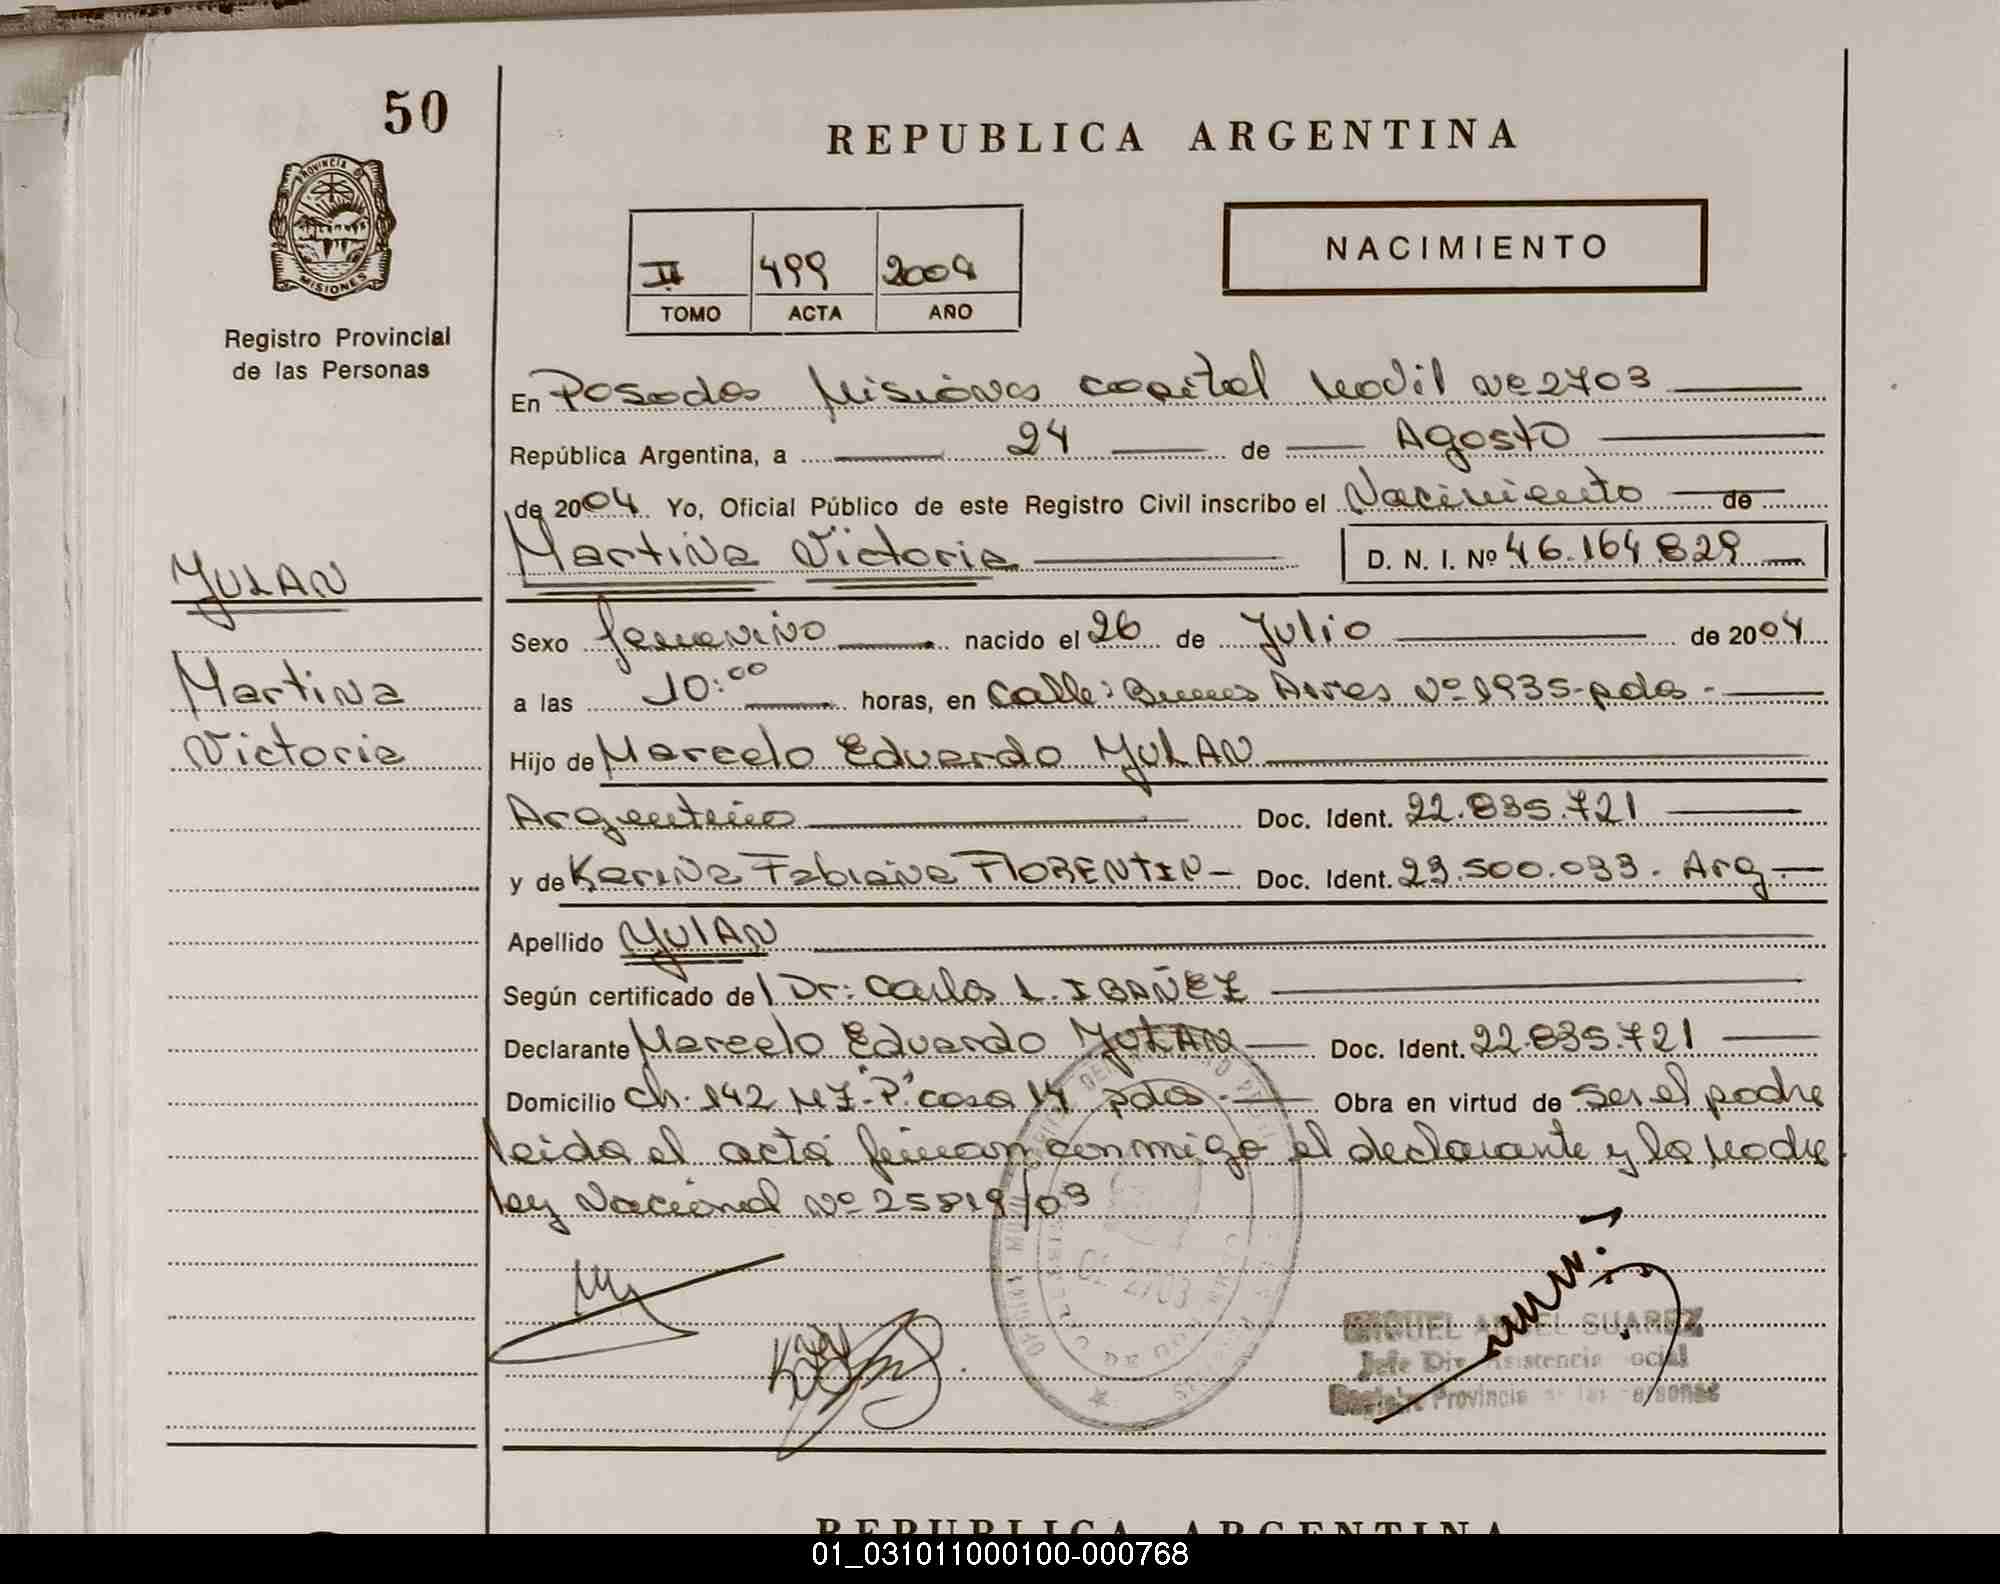 50
REPUBLICA ARGENTINA
PROVINCIA DE
MISIONES
Registro Provincial
de las Personas
NACIMIENTO
II 499 2004
TOMO ACTA AÑO
En Posadas Misiones capital Movil Nº 2703
República Argentina, a 24 de Agosto
de 2004 Yo, Oficial Público de este Registro Civil inscribo el Nacimiento de
Martina Victoria D. N. I. Nº 46.164.829
YULAN
Martina
Victoria
Sexo femenino nacido el 26 de Julio de 2004
a las 10:00 horas, en calle: Buenos Aires Nº 1935-pdas-
Hijo de Marcelo Eduardo YULAN
Argentino Doc. Ident. 22.835.721
y de Karina Fabiana FLORENTIN- Doc. Ident. 23.500.033. Arg-
Apellido YULAN
Según certificado de Dr: Carlos L. IBAÑEZ
Declarante Marcelo Eduardo YULAN Doc. Ident. 22.835.721
Domicilio ch. 142 MZ-"P" casa 14 pdas- Obra en virtud de ser el padre
leida el acta firman conmigo el declarante y la madre
ley Nacional Nº 25819/03
MIGUEL ANGEL SUAREZ
Jefe Div. Asistencia Social
Registro Provincial de las Personas
REPUBLICA ARGENTINA
01_031011000100-000768